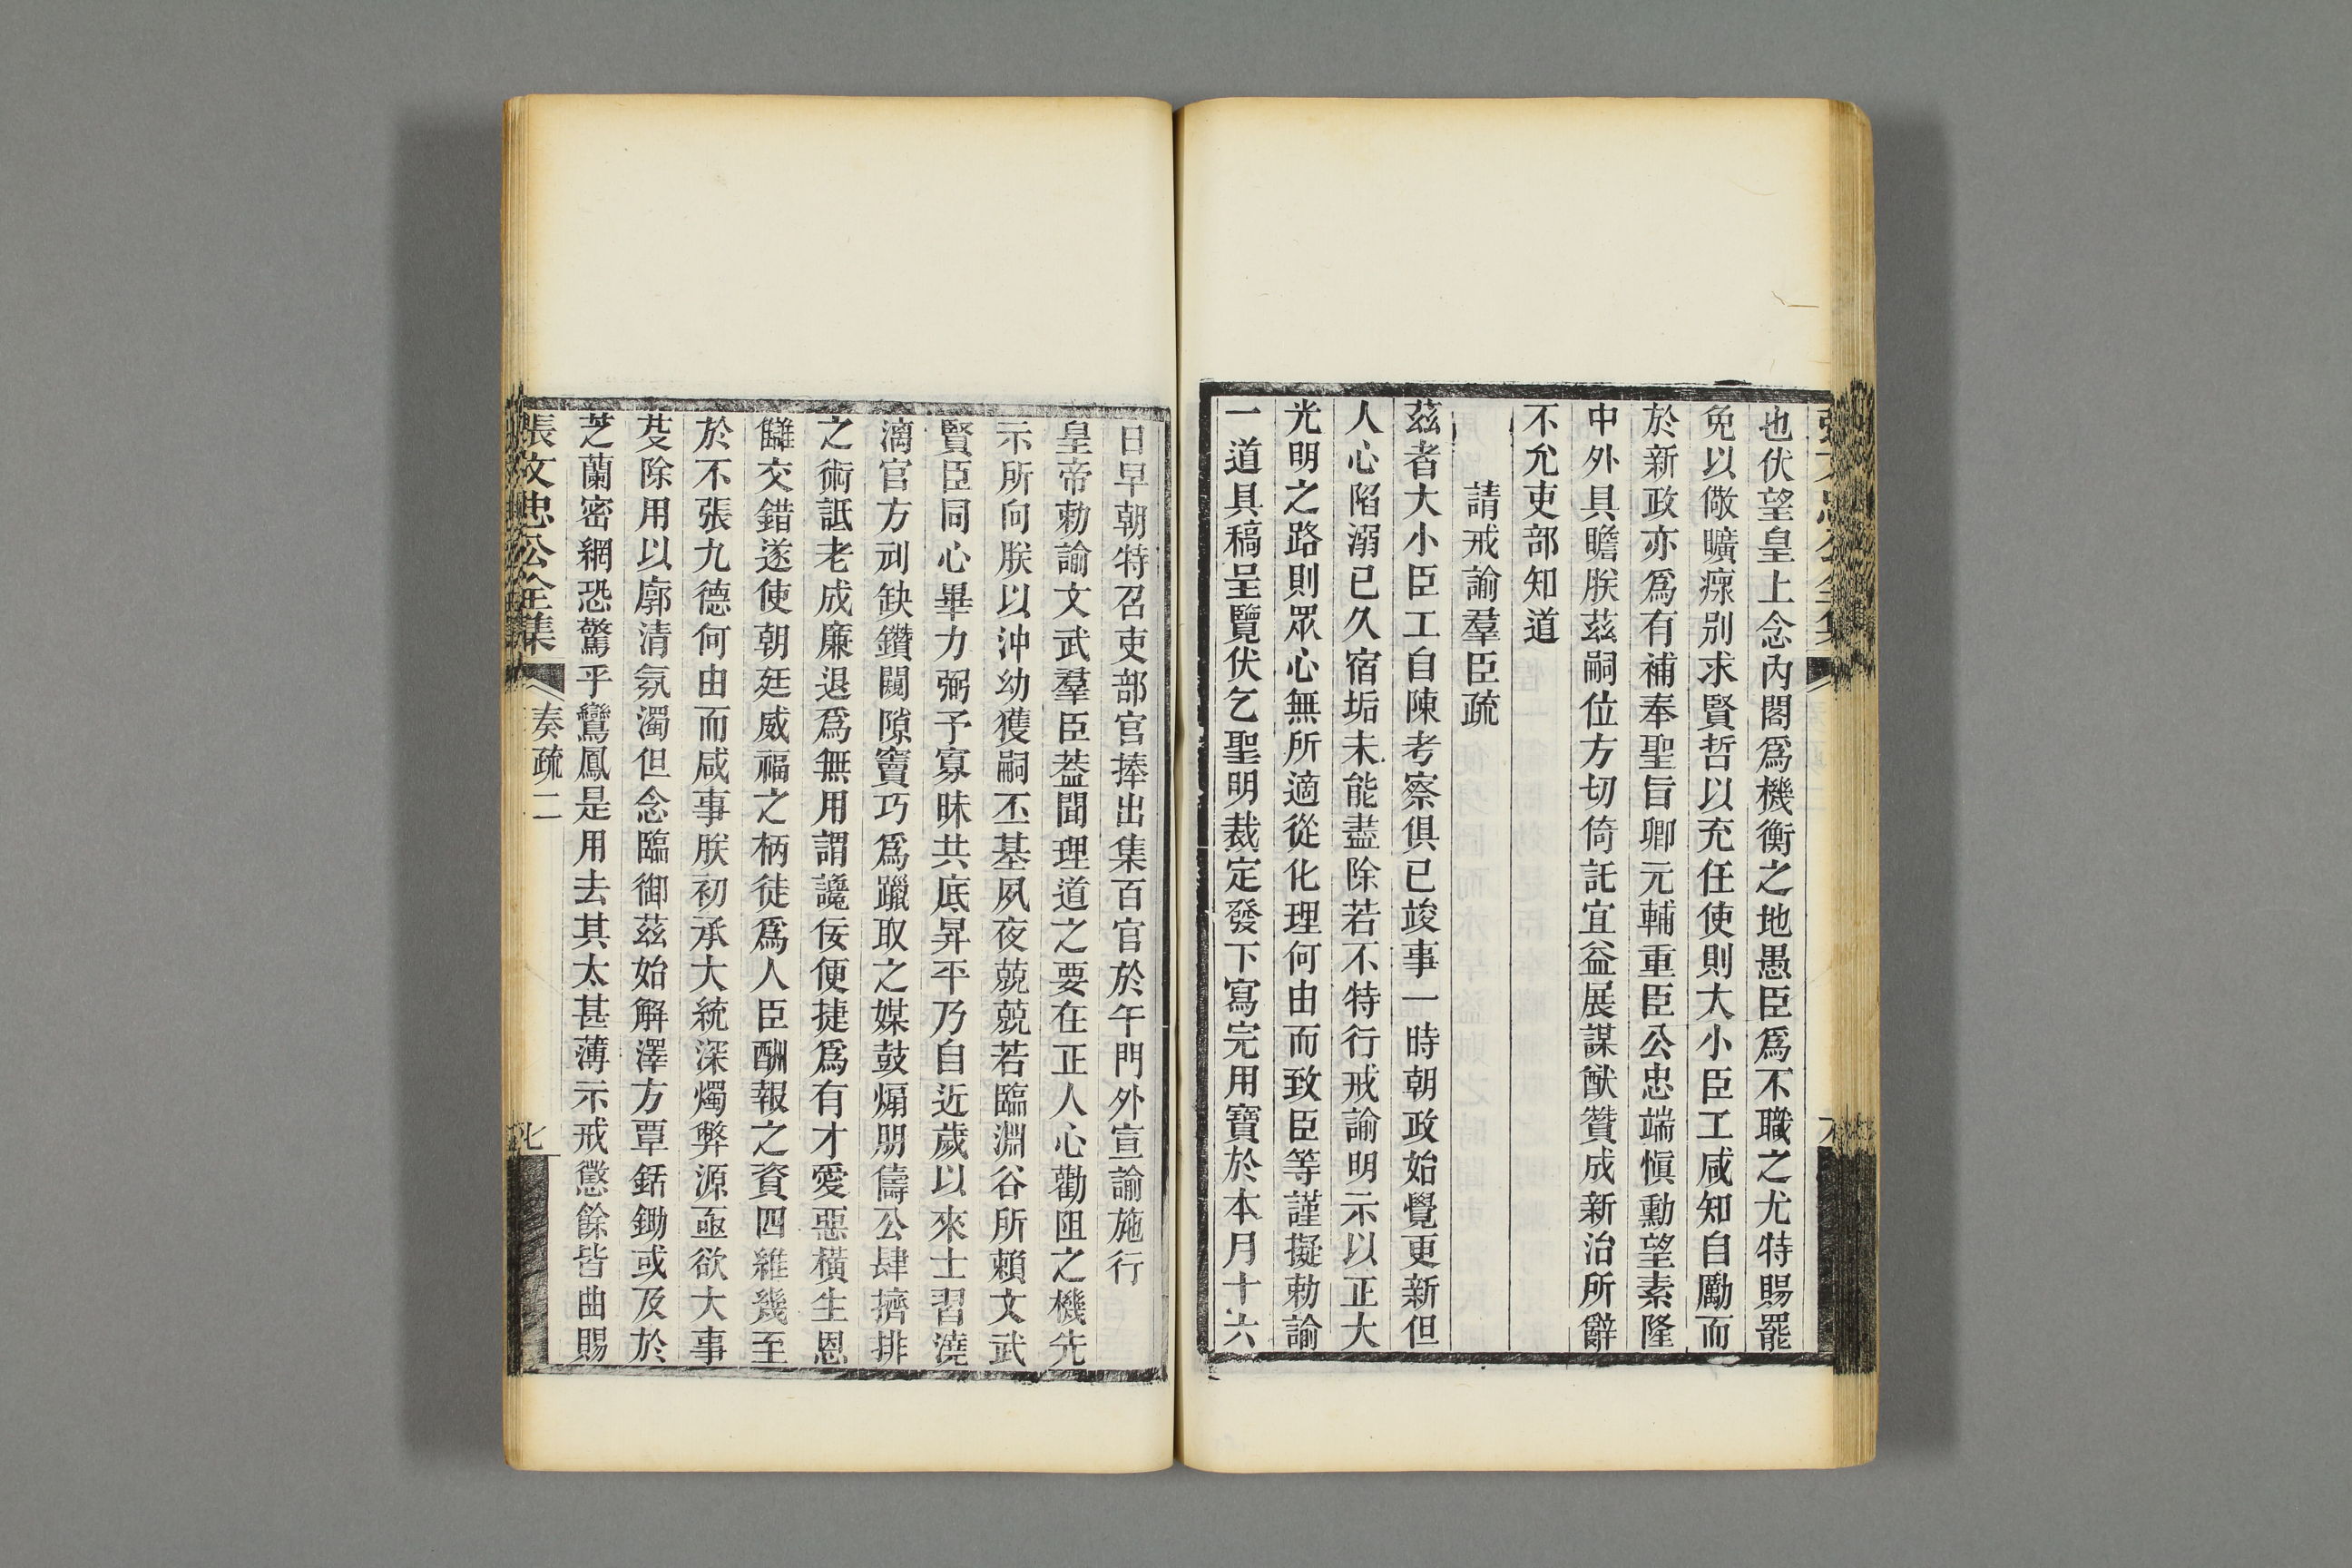 也伏望皇上念內閣爲機衡之地愚臣爲不職之尤特賜罷
免以儆曠瘝别求賢哲以充任使則大小臣工咸知自勵而
於新政亦爲有補奉聖旨卿元輔重臣公忠端愼勳望素隆
中外具瞻朕茲嗣位方切倚託宜益展謀猷贊成新治所辭
不允吏部知道
請戒諭羣臣疏
茲者大小臣工自陳考察俱已竣事一時朝政始覺更新但
人心陷溺已久宿垢未能盡除若不特行戒諭明示以正大
光明之路則眾心無所適從化理何由而致臣等謹擬勅諭
一道具稿呈覽伏乞聖明裁定發下寫完用寶於本月十六
日早朝特召吏部官捧出集百官於午門外宣諭施行
皇帝勅諭文武羣臣葢聞理道之要在正人心勸阻之機先
示所向朕以沖幼獲嗣丕基夙夜兢兢若臨淵谷所賴文武
賢臣同心畢力弼予寡昧共底昇平乃自近歲以來士習澆
漓官方刓缺鑽闚隙竇巧爲躐取之媒鼓煽朋儔公肆擠排
之術詆老成廉退爲無用謂讒佞便捷爲有才愛惡橫生恩
讎交錯遂使朝廷威福之柄徒爲人臣酬報之資四維幾至
於不張九德何由而咸事朕初承大統深燭弊源亟欲大事
芟除用以廓清氛濁但念臨御茲始解澤方覃銛鋤或及於
芝蘭密網恐驚乎鸞鳳是用去其太甚薄示戒懲餘皆曲賜
張文忠公全集 奏疏二 七